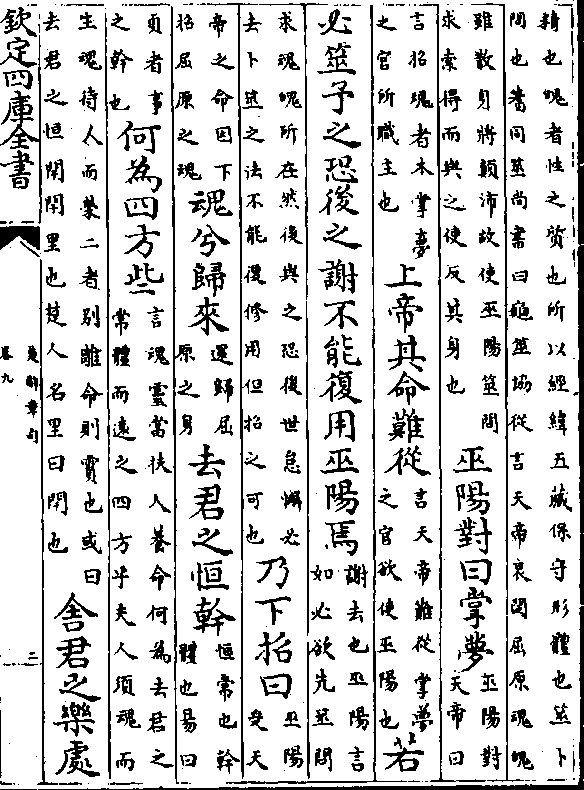 精也魄者性之質也所以經緯五藏保守形體也筮卜
問也蓍同筮尚書曰龜筮協從言天帝哀閔屈原魂魄
雖散身將顛沛故使巫陽筮問
求索得而與之使反其身也
巫陽對曰掌夢
巫陽對
天帝曰
言招魂者本掌夢
之官所職主也
上帝其命難從
言天帝難從掌夢
之官欲使巫陽也
若
必筮予之恐後之謝不能復用巫陽焉
謝去也巫陽言
如必欲先筮問
求魂魄所在然後與之恐後世怠懈必
去卜筮之法不能復修用但招之可也
乃下招曰
巫陽
受天
帝之命因下
招屈原之魂
魂兮歸來
還歸屈
原之身
去君之恒幹
恒常也幹
體也易曰
貞者事
之幹也
何為四方些
言魂靈當扶人養命何為去君之
常體而遠之四方乎夫人須魂而
生魂待人而榮二者别離命則霣也或曰
去君之恒閈閈里也楚人名里曰閈也
舍君之樂處
欽定四庫全書
楚辭章句
卷九